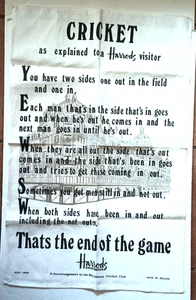 CRICKET
as explained to a Harrods visitor
You have two sides one out in the field
and one in.
Each man that's in the side that's in goes
out and when he's out he comes in and the
next man goes in until he's out.
When they are all out the side that's out
comes in and the side that's been in goes
out and tries to get these coming in out.
Sometimes you get men still in and not out.
When both sides have been in and out
including the not outs,
Thats the end of the game
Harrods
Acknowledgement to the Marylebone Cricket Club
MADE IN IRELAND